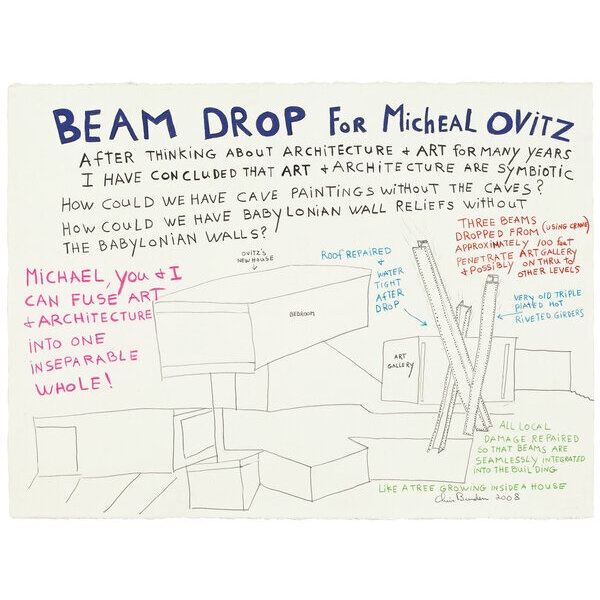 BEAM DROP FOR MicHEAL OVITZ
AFTER THINKING ABOUT ARCHITECTURE + ART FOR MANY YEARS
I HAVE CONCLUDED THAT ART + ARCHITECTURE ARE SYMBIOTIC
HOW COULD WE HAVE CAVE PAINTINGS WITHOUT THE CAVES?
HOW COULD WE HAVE BABYLONIAN WALL RELIEFS WITHOUT
THE BABYLONIAN WALLS?
MICHAEL, YOU + I
CAN FUSE ART
+ ARCHITECTURE
INTO ONE
INSEPARABLE
WHOLE!
OVITZ'S
NEW HOUSE
BEDROOM
ROOF REPAIRED
+
WATER
TIGHT
AFTER
DROP
ART
GALLERY
THREE BEAMS
DROPPED FROM (USING CRANE)
APPROXIMATELY 100 FEET
PENETRATE ART GALLERY
+ POSSIBLY ON THRU TO
OTHER LEVELS
VERY OLD TRIPLE
PLATED HOT
RIVETED GIRDERS
ALL LOCAL
DAMAGE REPAIRED
SO THAT BEAMS ARE
SEAMLESSLY INTEGRATED
INTO THE BUILDING
LIKE A TREE GROWING INSIDE A HOUSE
Chris Burden 2008